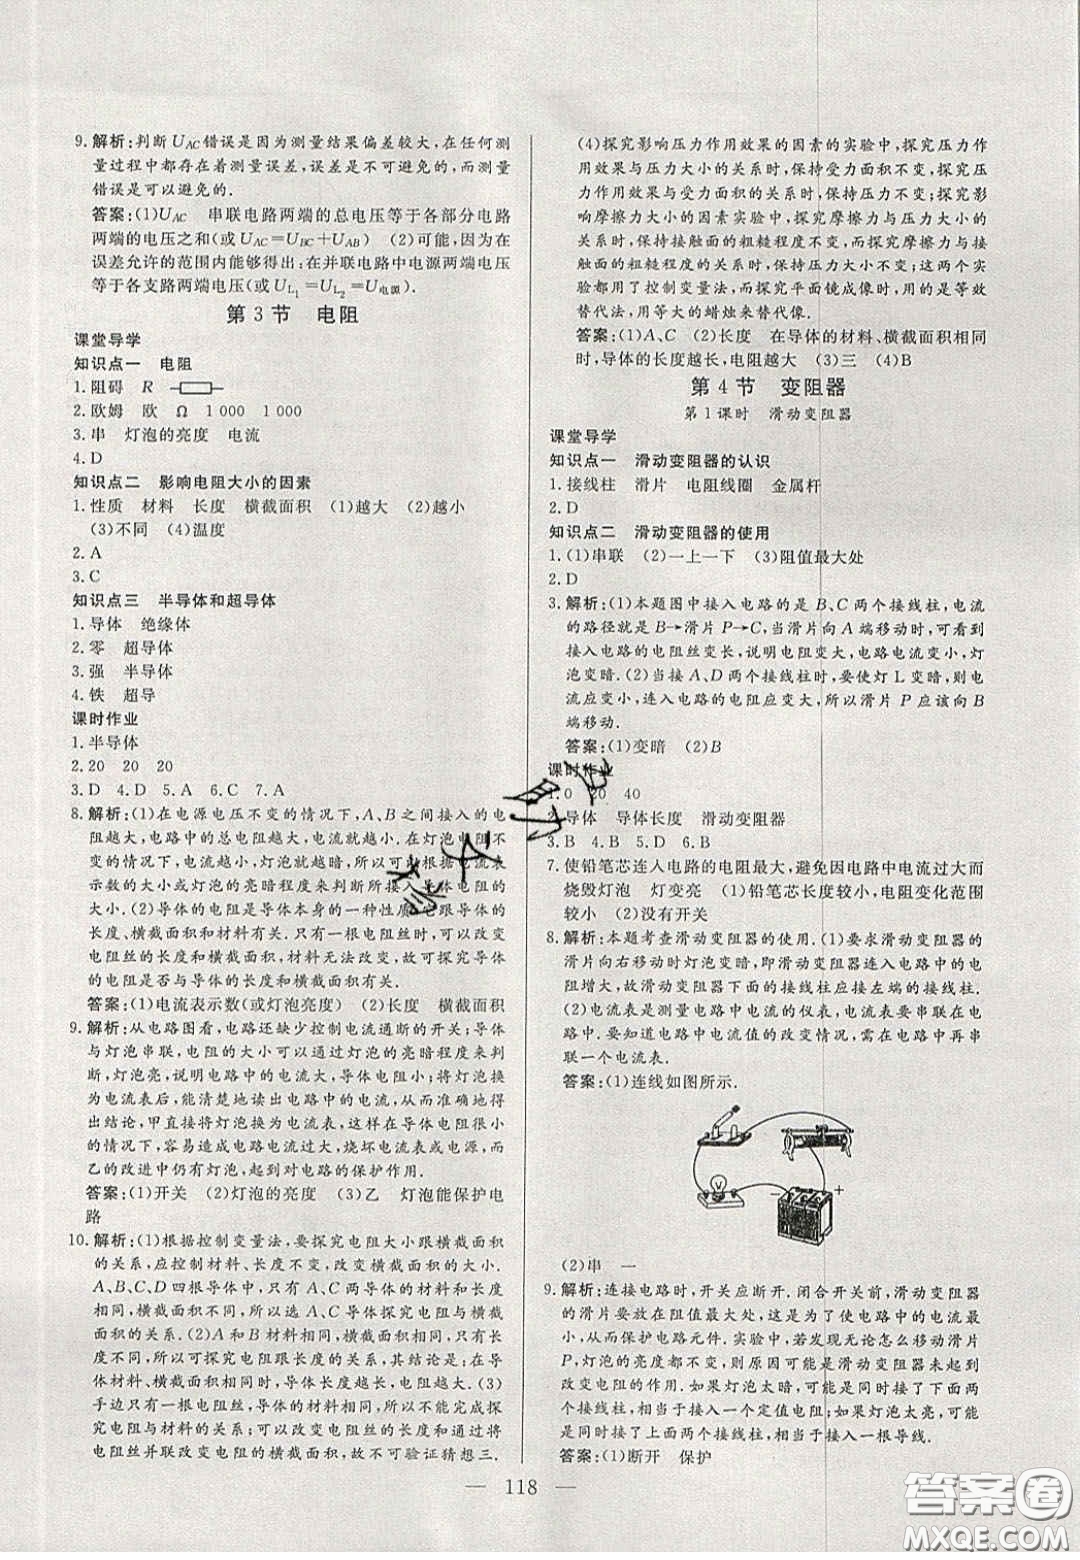 9. 解析:判断UAC错误是因为测量结果偏差较大,在任何测
量过程中都存在着测量误差,误差是不可避免的.测量
错误是可以避免的.
答案:(1)UAC　串联电路两端的总电压等于各部分电路
两端的电压之和(或UAC=UBC+UAB)　(2)可能,因为在
误差允许的范围内能够得出:在并联电路中电源两端电压
等于各支路两端电压(或UL1=UL2=U电源).
第3节　电阻
课堂导学
知识点一　电阻
1. 阻碍　R
2. 欧姆　欧　Ω　1 000　1 000
3. 串　灯泡的亮度　电流
4. D
知识点二　影响电阻大小的因素
1. 性质　材料　长度　横截面积　(1)越大　(2)越小
(3)不同　(4)温度
2. A
3. C
知识点三　半导体和超导体
1. 导体　绝缘体
2. 零　超导体
3. 强　半导体
4. 铁　超导
课时作业
1. 半导体
2. 20　20　20
3. D　4. D　5. A　6. C　7. A
8. 解析:(1)在电源电压不变的情况下,A、B之间接入的电
阻越大,电路中的总电阻越大,电流就越小.在灯泡电阻不
变的情况下,灯泡就越暗.所以可以根据电流表
示数的大小或灯泡的亮暗程度来判断所接入导体电阻的
大小.(2)导体的电阻是导体本身的一种性质,它跟导体的
长度、横截面积和材料有关.只有一根电阻丝时,可以改变
电阻丝的长度和横截面积,材料无法改变,故可探究导体的
电阻是否与导体的长度和横截面积有关.
答案:(1)电流表示数(或灯泡亮度)　(2)长度　横截面积
9. 解析:从电路图看,电路还缺少控制电流通断的开关;导体
与灯泡串联,电阻的大小可以通过灯泡的亮暗程度来判
断,灯泡亮,说明电路中的电流大,导体电阻小;灯泡改成
电流表后,能清楚地读出电路中的电流,从而更准确地得
出结论,甲直接将灯泡换为电流表,在导体电阻很小的
情况下,容易造成电路电流过大,烧坏电流表或电源,而
乙的改进中仍有灯泡,起到对电路的保护作用.
答案:(1)开关　(2)灯泡的亮度　(3)乙　灯泡能保护电
路
10. 解析:(1)根据控制变量法,要探究电阻大小跟横截面积
的关系,应控制材料、长度不变,改变横截面积的大小.
A、B、C、D四根导体中,只有A、C两导体的材料和长度
相同,横截面积不同,所以选A、C导体探究电阻与横截
面积的关系.(2)A和B材料相同,横截面积相同,长度不
同,所以可探究电阻跟长度的关系,其结论是:在
导体材料、横截面积相同时,导体长度越长,电阻越大.(3)
手边只有一根电阻丝,导体的材料相同,所以不能完成探
究电阻与材料的关系;可以改变接入电路的长度;通过将
电阻丝并联改变电阻的横截面积,故不可验证猜想三.
(4)探究影响压力作用效果的因素的实验中,探究压力作用
效果与压力大小的关系时,保持受力面积不变,而探究压
力作用效果与受力面积的关系时,保持压力不变;探究影
响摩擦力大小的因素实验中,探究摩擦力与压力大小的
关系时,保持接触面的粗糙程度不变,而探究摩擦力与接
触面的粗糙程度的关系时,保持压力大小不变.这两个实
验都用了控制变量法,而探究平面镜成像时,用的是等效
替代法,用等大的蜡烛来替代像.
答案:(1)A、C　(2)长度　在导体的材料、横截面积相同
时,导体的长度越长,电阻越大　(3)三　(4)B
第4节　变阻器
第1课时　滑动变阻器
课堂导学
知识点一　滑动变阻器的认识
1. 接线柱　滑片　电阻线圈　金属杆
2. D
知识点二　滑动变阻器的使用
1. (1)串联　(2)一上一下　(3)阻值最大处
2. D
3. 解析:(1)本题图中接入电路的是B、C两个接线柱,电流
的路径就是B→滑片P→C,当滑片向A端移动时,可看到
接入电路的电阻丝变长,说明电阻变大,电路电流变小,灯
泡变暗.(2)当接A、D两个接线柱时,要使灯L变暗,则电
流应变小,连入电路的电阻应变大,所以滑片P应该向B
端移动.
答案:(1)变暗　(2)B
课时作业
1. 0　20　40
2. 导体　导体长度　滑动变阻器
3. B　4. B　5. D　6. B
7. 使铅笔芯连入电路的电阻最大,避免因电路中电流过大而
烧毁灯泡　灯变亮　(1)铅笔芯长度较小,电阻变化范围
较小　(2)没有开关
8. 解析:本题考查滑动变阻器的使用.(1)要求滑动变阻器的
滑片向右移动时灯泡变暗,即滑动变阻器连入电路中的电
阻增大,故滑动变阻器下面的接线柱应接左端的接线柱.
(2)电流表是测量电路中电流的仪表,电流表要串联在电
路中.要知道电路中电流值的改变情况,需在电路中再串
联一个电流表.
答案:(1)连线如图所示.
－　＋
(2)串　一
9. 解析:连接电路时,开关应断开.闭合开关前,滑动变阻器
的滑片要放在阻值最大处,这是为了使电路中的电流最
小,从而保护电路元件.实验中,若发现无论怎么移动滑片
P,灯泡的亮度都不变,则原因可能是滑动变阻器未起到
改变电阻的作用.如果灯泡太暗,可能是同时接了下面两
接线柱,相当于接入一个定值电阻;如果灯泡太亮,可能是
同时接了上面两个接线柱,相当于接入了一根导线.
答案:(1)断开　保护
— 118 —
答案卷
MXQE.COM